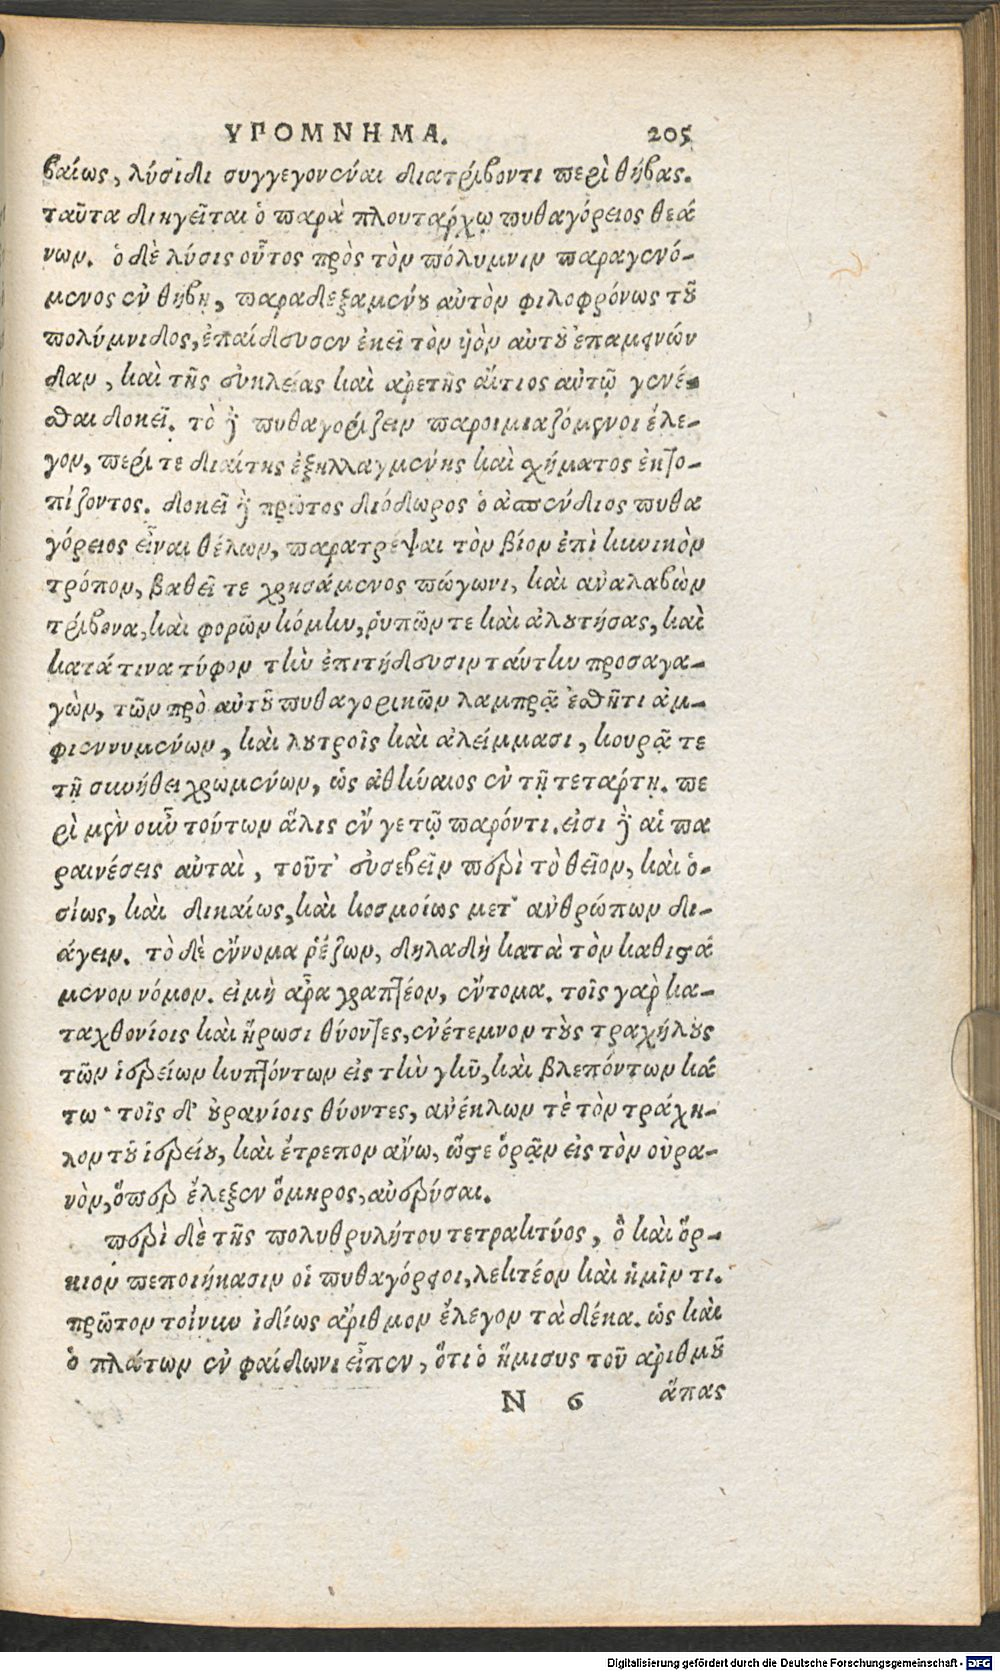 ΥΠΟΜΝΗΜΑ. 205
βαίως, λύσιδι συγγεγονέναι διατρίβοντι περὶ θήβας.
ταῦτα διηγεῖται ὁ παρὰ πλουτάρχῳ πυθαγόρειος θεά
νωρ. ὁ δὲ λύσις οὗτος πρὸς τὸν πόλυμνιν παραγενό-
μενος ἐν θήβῃ, παραδεξαμένου αὐτὸν φιλοφρόνως τοῦ
πολύμνιδος, ἐπαίδευσεν ἐκεῖ τὸν ὑὸν αὐτοῦ ἐπαμεινών
δαν, καὶ τῆς εὐκλείας καὶ ἀρετῆς αἴτιος αὐτῷ γενέ-
σθαι δοκεῖ. τὸ δὲ πυθαγορίζειν παροιμιαζόμενοι ἔλε-
γον, περί τε διαίτης ἐξηλλαγμένης καὶ σχήματος ἐκτο-
πίζοντος. δοκεῖ δὲ πρῶτος διόδωρος ὁ ἀσπένδιος πυθα
γόρειος εἶναι θέλων, παρατρέψαι τὸν βίον ἐπὶ κυνικὸν
τρόπον, βαθεῖ τε χρησάμενος πώγωνι, καὶ ἀναλαβὼν
τρίβωνα, καὶ φορῶν κόμην, ῥυπῶν τε καὶ ἀλουτήσας, καὶ
κατά τινα τύφον τὴν ἐπιτήδευσιν ταύτην προσαγα-
γὼν, τῶν πρὸ αὐτοῦ πυθαγορικῶν λαμπρᾷ ἐσθῆτι ἀμ-
φιεννυμένων, καὶ λουτροῖς καὶ ἀλείμμασι, κουρᾷ τε
τῇ συνήθει χρωμένων, ὡς ἀθήναιος ἐν τῇ τετάρτῃ. πε
ρὶ μὲν οὖν τούτων ἅλις ἔν γε τῷ παρόντι. εἰσι δὲ αἱ πα
ραινέσεις αὐταὶ, τοῦτ' εὐσεβεῖν περὶ τὸ θεῖον, καὶ ὁ-
σίως, καὶ δικαίως, καὶ κοσμοίως μετ' ἀνθρώπων δι-
άγειν. τὸ δὲ ἔννομα ῥέζων, δηλαδὴ κατὰ τὸν καθιστά
μενον νόμον. εἰ μὴ ἄρα γραπτέον, ἔντομα. τοῖς γὰρ κα-
ταχθονίοις καὶ ἥρωσι θύοντες, ἐνέτεμνον τοὺς τραχήλους
τῶν ἱερείων κυπτόντων εἰς τὴν γῆν, καὶ βλεπόντων κά
τω· τοῖς δ' οὐρανίοις θύοντες, ἀνέκλων τὲ τὸν τράχη-
λον τοῦ ἱερείου, καὶ ἔτρεπον ἄνω, ὥστε ὁρᾷν εἰς τὸν οὐρα-
νὸν, ὅπερ ἔλεξεν ὅμηρος, αὐερύσαι.
περὶ δὲ τῆς πολυθρυλήτου τετρακτύος, ὃ καὶ ὅρ-
κιον πεποιήκασιν οἱ πυθαγόρειοι, λεκτέον καὶ ἡμῖν τι.
πρῶτον τοίνυν ἰδίως ἄριθμον ἔλεγον τὰ δέκα. ὡς καὶ
ὁ πλάτων ἐν φαίδωνι εἶπεν, ὅτι ὁ ἥμισυς τοῦ ἀριθμοῦ
N 6 ἅπας
Digitalisierung gefördert durch die Deutsche Forschungsgemeinschaft - DFG